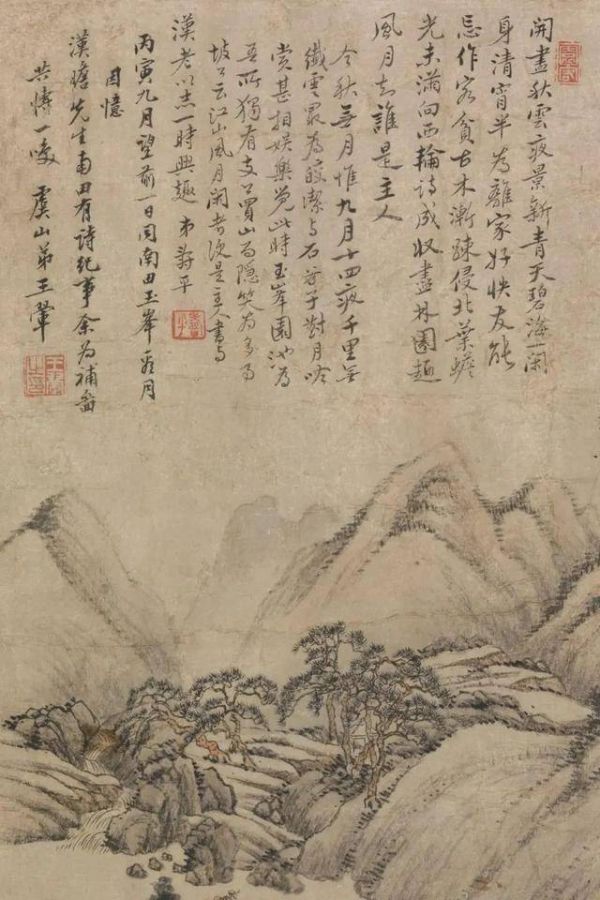 開盡秋雲夜景新青天碧海一閑
身清宵半為離家好快友能
忘作客貧古木漸疎侵北葉蟾
光未滿向西輪詩成收盡林園趣
風月知誰是主人
今秋無月惟九月十四夜千里無
纖雲最為皎潔與石谷子對月吟
賞甚相娛樂覺此時玉峯園池為
吾所獨有支公買山而隱笑為多事
坡公云江山風月閑者便是主人書與
漢老以志一時興趣 弟壽平
丙寅九月望前一日同南田玉峯看月
因憶
漢瞻先生南田有詩紀事余為補圖
共博一噱 虞山弟王翬